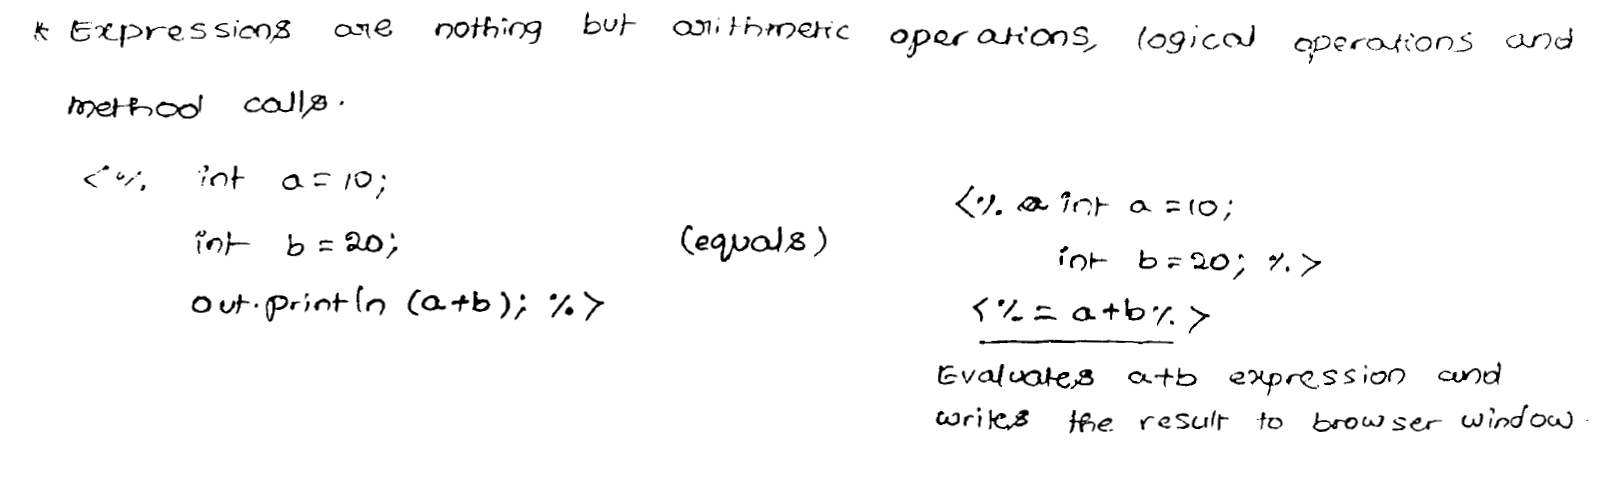 * Expressions are nothing but arithmetic operations, logical operations and
method calls.
<% int a = 10;
int b = 20;
out.println (a+b); %>
(equals)
<% int a = 10;
int b = 20; %>
<% = a+b %>
Evaluates a+b expression and
writes the result to browser window.